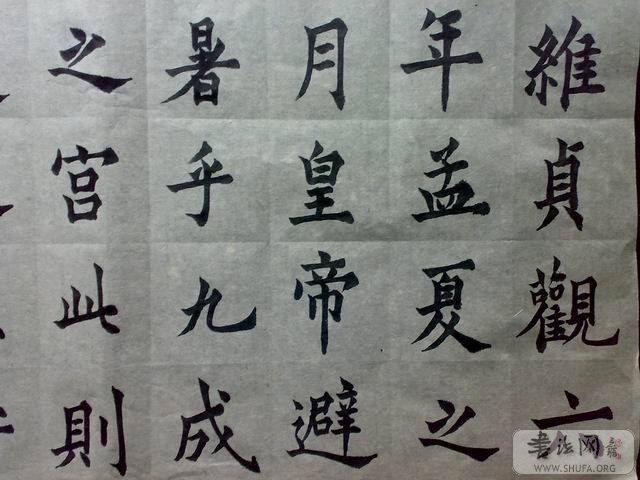 維貞觀六
年孟夏之
月皇帝避
暑乎九成
之宮此則
书法网
WWW.SHUFA.ORG